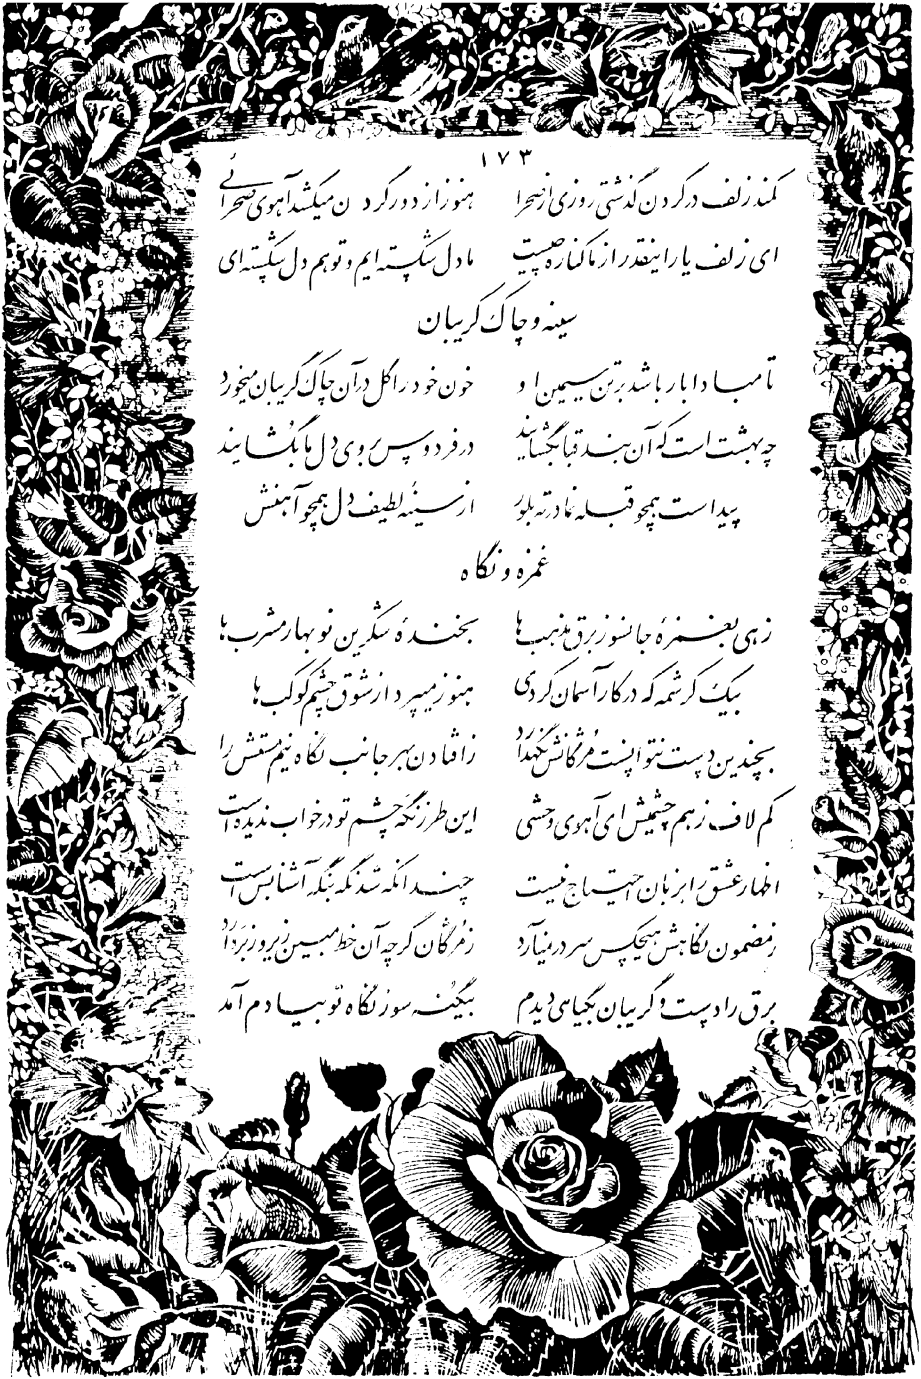 ۱۷۳
کمند زلف در گردن گذشتی روزی از صحرا هنوز از دور گردن میکشد آهوی صحرائی
ای زلف یار اینقدر از ما کناره چیست ما دل شکسته ایم و تو هم دل شکسته ای
سینه و چاک گریبان
تا مبادا بار باشد بر تن سیمین او خون خود را گل در آن چاک گریبان میخورد
چه بهشت است که آن بند قبا بگشایند در فردوس بروی دل ما بگشایند
پیداست همچو قبله نما در ته بلور از سینهٔ لطیف دل همچو آهنش
غمزه و نگاه
زهی بغمزهٔ جانسوز برق مذهب ها بخندهٔ شکرین نوبهار مشرب ها
بیک کرشمه که در کار آسمان کردی هنوز میپرد از شوق چشم کوکب ها
بچندین دست نتوانست مژگانش نگهدارد ز افتادن بهر جانب نگاه نیم مستش را
کم لاف زهم چشمیش ای آهوی وحشی این طرز نگه چشم تو در خواب ندیده است
اظهار عشق را بزبان احتیاج نیست چندانکه شد نگه بنگه آشنا بس است
ز مضمون نگاهش هیچکس سر در نمیآرد ز مژگان گرچه آن خط مبین زیر و زبر دارد
برق را دست و گریبان بگیاهی دیدم بیگنه سوز نگاه تو بیادم آمد